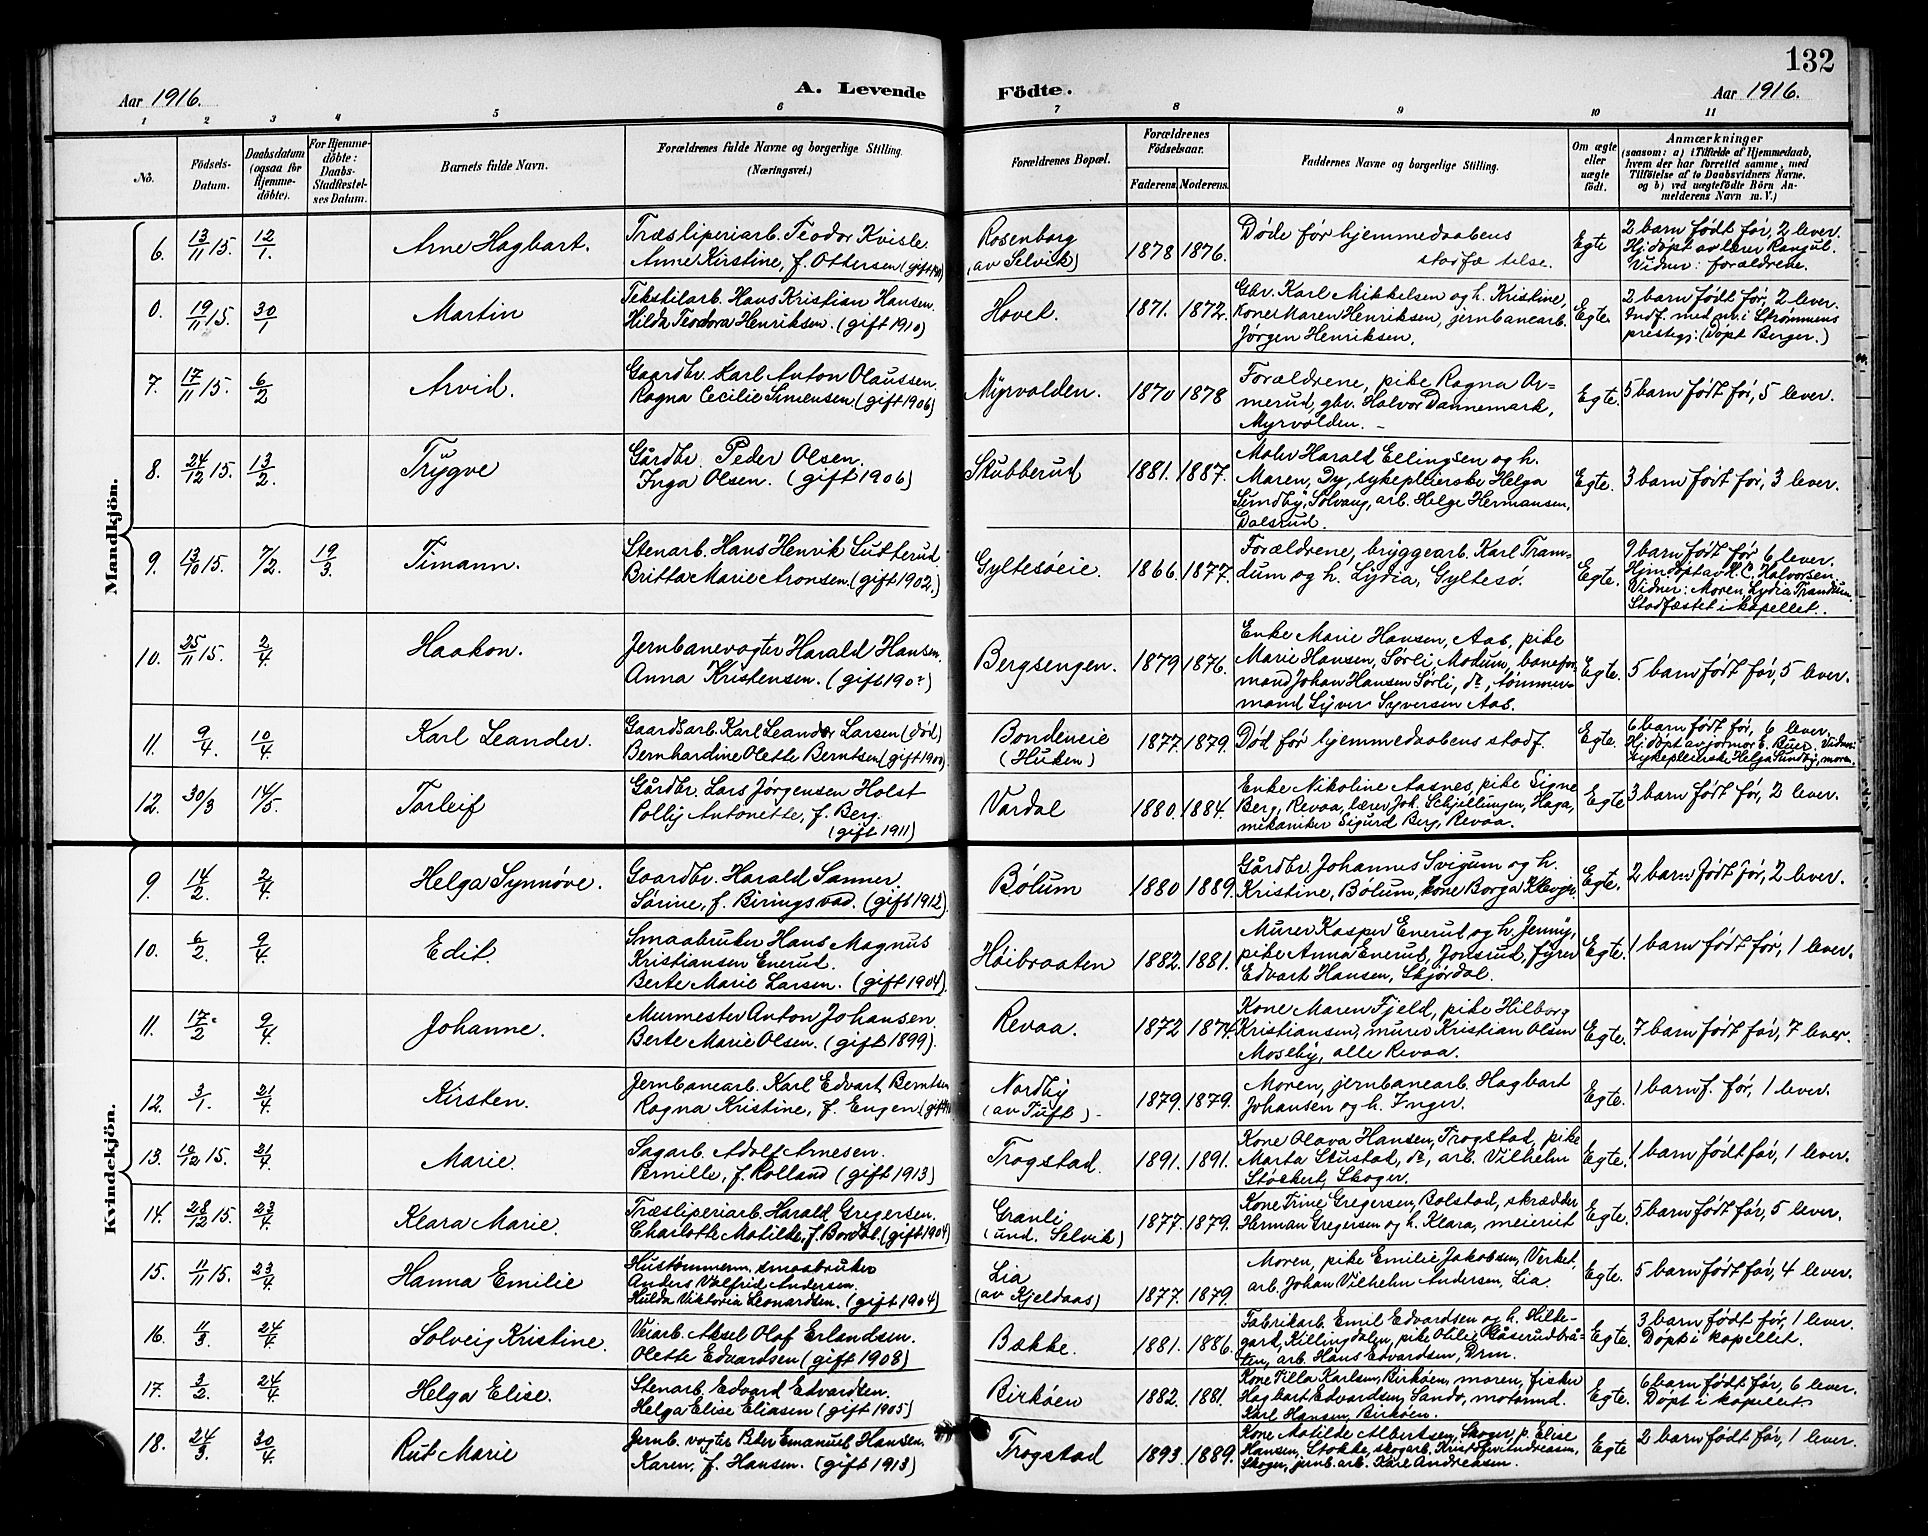 132
Aar 1916.
A. Levende
Födte.
Aar 1916.
1 2 3 4 5 6 7 8 9 10 11
No.
Födsels-
Datum.
Daabsdatum
(ogsaa for
Hjemme-
döbte).
For Hjemme-
döbte:
Daabs-
Stadfæstel-
ses Datum.
Barnets fulde Navn.
Forældrenes fulde Navne og borgerlige Stilling.
(Næringsvei.)
Forældrenes Bopæl.
Forældrenes
Födselsaar.
Faderens. Moderens.
Faddernes Navne og borgerlige Stilling.
Om ægte
eller
uægte
födt.
Anmærkninger
(saasom: a) i Tilfælde af Hjemmedaab,
hvem der har forrettet samme, med
Tilföielse af to Daabsvidners Navne,
og b) ved uægtefödte Börn An-
melderens Navn m. V.)
Mandkjön.
6. 13/11 15. 12/1. Arne Hagbart.
Træsliperiarb. Teodor Kvisle
Anne Kirstine, f. Ottersen
Rosenborg
(av Selvik)
1878 1876.
Døde før hjemmedaabens
stadfæstelse.
Egte
2 barn født før, 2 lever.
Hj. døpt av lærer Rangul.
Vidner: forældrene.
0. 19/11 15. 30/1 Martin
Tekstilarb. Hans Kristian Hansen.
Hilda Teodora Henriksen. (gift 1910)
Hovet.
1871. 1872.
Gbr. Karl Mikkelsen og h. Kristine,
Kone Maren Henriksen, jernbanearb.
Jørgen Henriksen.
Egte.
2 barn født før, 2 lever.
Indf. med nr. i Strømmens
prestegj. (Døpt Berger.)
7. 17/11 15. 6/2 Arvid.
Gaardbr. Karl Anton Olaussen.
Ragna Cecilie Simensen. (gift 1906)
Myrvolden.
1870 1878
Forældrene, pike Ragna Ar-
merud, gbr. Halvor Dannemark,
Myrvolden. -
Egte.
5 barn født før, 5 lever.
8. 24/12 15. 13/2. Trygve
Gårdbr. Peder Olsen.
Inga Olsen. (gift 1906)
Skubberud
1881. 1887.
Maler Harald Ellingsen og h.
Maren, Dy, sykepleierske Helga
Sundby, Solvang, arb. Helge Hermansen,
Dalsrud.
Egte.
3 barn født før, 3 lever.
9. 13/10 15. 7/2. 19/3. Timann.
Stenarb. Hans Henrik Sutterud
Britta Marie Aronsen. (gift 1902.)
Gyltesøeie.
1866. 1877.
Forældrene, bryggearb. Karl Tran-
dum og h. Lydia, Gyltesø.
Egte.
9 barn født før 6 lever.
Hjm. døpt av K. C. Halvorsen.
Vidner: Moren, Lydia Trandum.
Stadfæstet i kapellet.
10. 25/11 15. 2/4. Haakon.
Jernbanevogter Harald Hansen.
Anna Kristensen.
Bergsengen.
1879 1876.
Enke Marie Hansen, Aas, pike
Marie Hansen, Sørli, Modum, banefor-
mand Johan Hansen Sørli, do, tømmer-
mand Syver Syversen Aas.
Egte.
5 barn født før, 5 lever.
11. 9/4. 10/4 Karl Leander.
Gaardsarb. Karl Leander Larsen (død)
Bernhardine Olette Berntsen (gift 1900)
Bondeneie
(Huken)
1877. 1879.
Død før hjemmedaabens stadf.
Egte.
6 barn født før, 6 lever.
Hj. døpt av jormor E. Ruer. Vidner:
sykepleierske Helga Sundby, moren.
12. 30/3 14/5. Torleif
Gårdbr. Lars Jørgensen Holst
Polly Antonette, f. Berg.
(gift 1911)
Vardal
1880. 1884.
Enke Nikoline Aasnes, pike Signe
Berg, Revaa, lærer Joh. Schjellingen, Haga,
mekaniker Sigurd Berg, Revaa.
Egte
3 barn født før, 2 lever.
Kvindekjön.
9. 14/2. 2/4. Helga Synnøve.
Gaardbr. Harald Sanner.
Sørine, f. Biringsvad. (gift 1912)
Bølum
1880 1889.
Gårdbr. Johannes Svigum og h.
Kristine, Bølum, kone Borga Klevjer.
Egte.
2 barn født før, 2 lever.
10. 6/2. 9/4. Edit.
Smaabruker Hans Magnus
Kristiansen Enerud.
Berte Marie Larsen. (gift 1904)
Høibraaten
1882. 1881.
Murer Kasper Enerud og h. Jenny,
pike Anna Enerud, Jonsrud, fyrer
Edvart Hansen, Skjørdal.
Egte.
1 barn født før, 1 lever.
11. 17/2. 9/4. Johanne.
Murmester Anton Johansen.
Berte Marie Olsen. (gift 1899).
Revaa.
1872 1874.
Kone Maren Fjeld, pike Hilborg
Kristiansen, murer Kristian Olsen
Moseby, alle Revaa.
Egte.
7 barn født før, 7 lever.
12. 3/1. 21/4. Kirsten.
Jernbanearb. Karl Edvart Berntsen
Ragna Kristine, f. Engen
Nordby
(av Tuft)
1879. 1879.
Moren, jernbanearb. Hagbart
Johansen og h. Inger.
Egte.
1 barn f. før, 1 lever.
13. 19/12 15. 21/4. Marie.
Sagarb. Adolf Arnesen.
Pernille, f. Rolland (gift 1913)
Trogstad.
1891. 1891.
Kone Olava Hansen, Trogstad, pike
Marta Skustad, do, arb. Vilhelm
Støckert, Skoger.
Egte.
1 barn født før, 1 lever.
14. 28/12 15. 23/4. Klara Marie.
Træsliperiarb. Harald Gregersen.
Charlotte Matilde, f. Bordal. (gift 1904)
Granli
(und. Selvik)
1877. 1879.
Kone Trine Gregersen, Bolstad, skrædder
Herman Gregersen og h. Klara, meieriet
Egte.
5 barn født før, 5 lever.
15. 11/11 15. 23/4. Hanna Emilie
Hustømmerm. smaabruker
Anders Valfrid Andersen,
Hulda Viktoria Leonardsen. (gift 1904)
Lia
(av Kjeldaas)
1877. 1879.
Moren, pike Emilie Jakobsen, Verket,
arb. Johan Vilhelm Andersen, Lia.
Egte.
5 barn født før, 4 lever.
16. 11/3. 24/4. Solveig Kristine.
Veiarb. Aksel Olaf Erlandsen.
Olette Edvardsen (gift 1908)
Bække.
1881. 1886.
Fabrikarb. Emil Edvardsen og h. Hilde-
gard, Killingdalen, pike Otilie Gåserudbrå-
ten, arb. Hans Edvardsen, Drm.
Egte.
3 barn født før, 1 lever.
Døpt i kapellet.
17. 3/2. 24/4 Helga Elise.
Stenarb. Edvard Edvardsen.
Helga Elise Eliasen (gift 1905)
Birkøen
1882. 1881.
Kone Tilla Karlsen, Birkøen, moren, fisker
Hagbart Edvardsen, Sandø, matsmd.
Karl Hansen, Birkøen.
Egte.
6 barn født før, 6 lever.
Døpt i kapellet.
18. 24/3 30/4. Rut Marie
Jernb. vogter Peder Emanuel Hansen.
Karen, f. Hansen. (gift 1913)
Trogstad
1893. 1889.
Kone Matilde Albertsen, Skoger, p. Elise
Hansen, Stokke, skogarb. Kristen Andreassen,
Skoger, jernb. arb. Karl Andreassen.
Egte
2 barn født før, 1 lever.